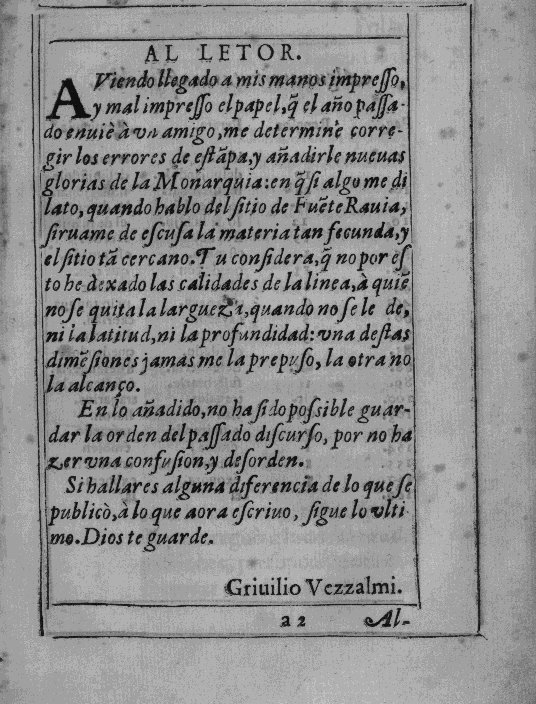 AL LETOR.
AViendo llegado a mis manos impresso,
y mal impresso el papel, q̃ el año passa-
do enuiè à vn amigo, me determinè corre-
gir los errores de estãpa, y añadirle nueuas
glorias de la Monarquia: en q̃ si algo me di
lato, quando hablo del sitio de Fuẽte Rauia,
siruame de escusa la materia tan fecunda, y
el sitio tã cercano. Tu considera, q̃ no por es
to he dexado las calidades de la linea, à quiẽ
no se quita la largueza, quando no se le de,
ni la latitud, ni la profundidad: vna destas
dimẽsiones jamas me la prepuso, la otra no
la alcanço.
En lo añadido, no ha sido possible guar-
dar la orden del passado discurso, por no ha
zer vna confusion, y desorden.
Si hallares alguna diferencia de lo que se
publicò, à lo que aora escriuo, sigue lo vlti
mo. Dios te guarde.
Griuilio Vezzalmi.
a 2 Al-